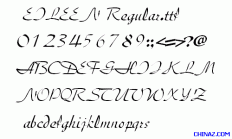 EILEEN Regular.ttf
0123456789:;<=>?@
ABCDEFGHIJKLM
NOPQRSTUVWXYZ
abcdefghijklmnopqrs
CHINAZ.COM